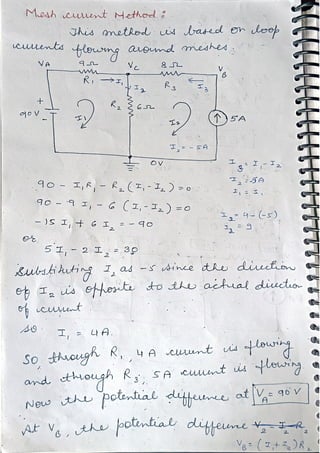 Mesh current Method :
This method is based on loop
currents flowing around meshes.
VA 9Ω VC 8Ω VB
R1 → I1 I2 R3 ← I3
+ 90V - I1 R2 6Ω I2 ↑ 5A
I2 = - 5A
0V
I3 = I1 - I2
I2 = 5A
I1 = I1
90 - I1R1 - R2 (I1 - I2) = 0
90 - 9 I1 - 6 (I1 - I2) = 0
- 15 I1 + 6 I2 = - 90
I3 = 4 - (-5)
I2 = 9
or
5 I1 - 2 I2 = 30
Substituting I2 as -5 since the direction
of I2 is opposite to the actual direction
of current
so I1 = 4A.
So, through R1, 4 A current is flowing
and through R3, 5A current is flowing
Now the potential difference at VA = 90 V
At VB, the potential differenne
VB = (I1 + I2) R2